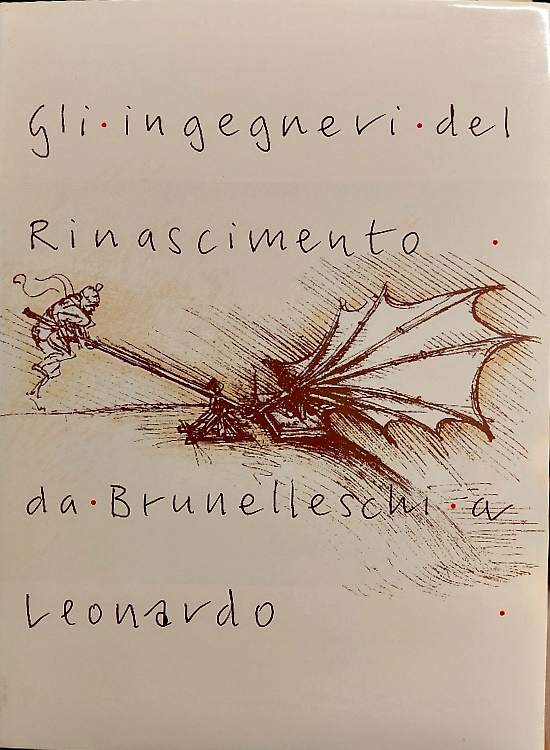 Gli·ingegneri·del
Rinascimento·
da·Brunelleschi·a
Leonardo·